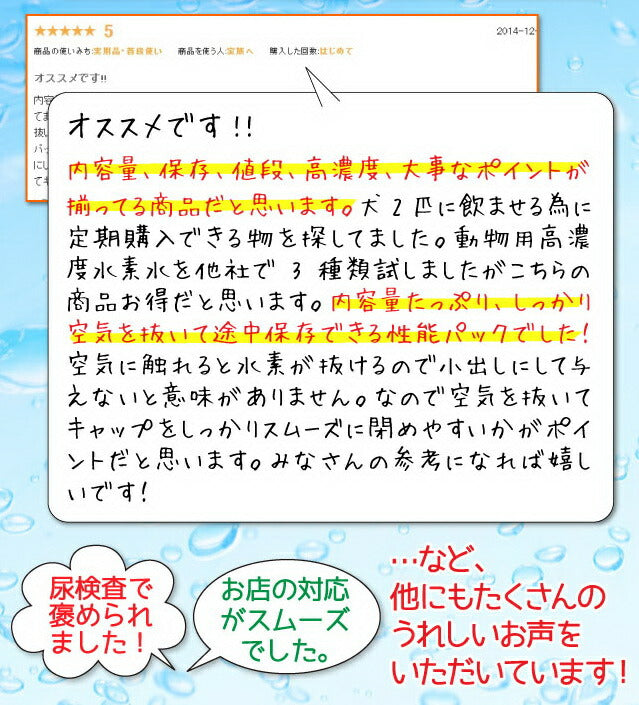 ★★★★★ 5
2014-12-
商品の使いみち:実用品・普段使い 商品を使う人:家族へ 購入した回数:はじめて
オススメです!!
オススメです!!
内容量、保存、値段、高濃度、大事なポイントが
揃ってる商品だと思います。犬2匹に飲ませる為に
定期購入できる物を探してました。動物用高濃
度水素水を他社で3種類試しましたがこちらの
商品お得だと思います。内容量たっぷり、しっかり
空気を抜いて途中保存できる性能パックでした!
空気に触れると水素が抜けるので小出しにして与
えないと意味がありません。なので空気を抜いて
キャップをしっかりスムーズに閉めやすいかがポイ
ントだと思います。みなさんの参考になれば嬉し
いです!
尿検査で
褒められ
ました!
お店の対応
がスムーズ
でした。
…など、
他にもたくさんの
うれしいお声を
いただいています!